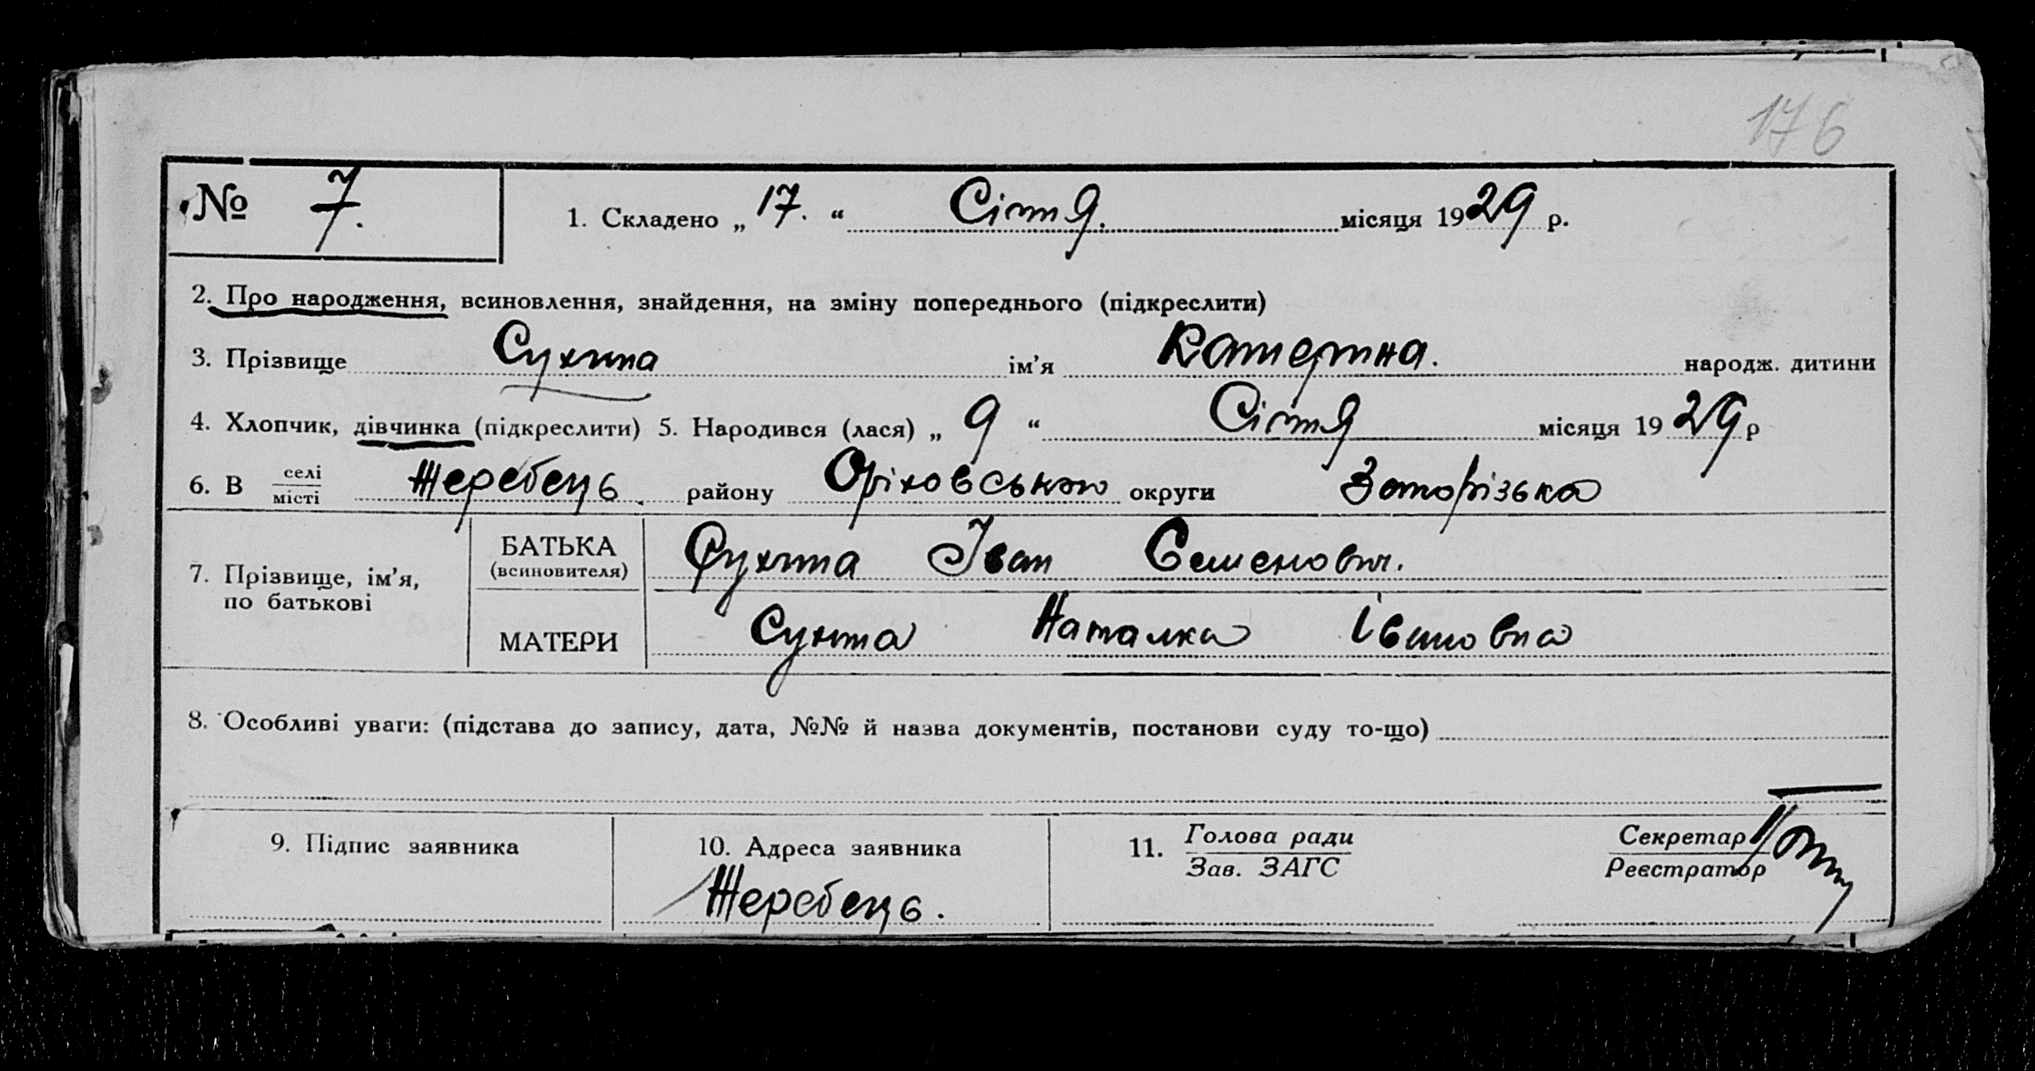 176
№ 7.
1. Складено „ 17. “ Січня. місяця 1929 р.
2. Про народження, всиновлення, знайдення, на зміну попереднього (підкреслити)
3. Прізвище Сухина ім’я Катерина. народж. дитини
4. Хлопчик, дівчинка (підкреслити) 5. Народився (лася) „ 9 “ Січня місяця 1929 р
6. В селі
місті Жеребець району Оріховського округи Запорізька
7. Прізвище, ім’я, по батькові
БАТЬКА (всиновителя) Сухина Іван Семенович.
МАТЕРИ Сухина Наталка Івановна
8. Особливі уваги: (підстава до запису, дата, №№ й назва документів, постанови суду то-що)
9. Підпис заявника
10. Адреса заявника
Жеребець.
11. Голова ради
Зав. ЗАГС
Секретар
Реєстратор